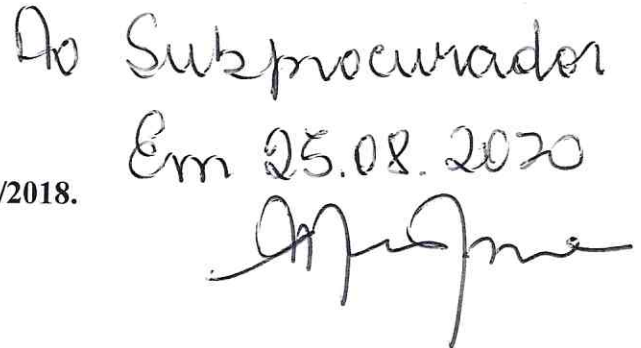 Ao Subprocurador
Em 25.08.2020
/2018.